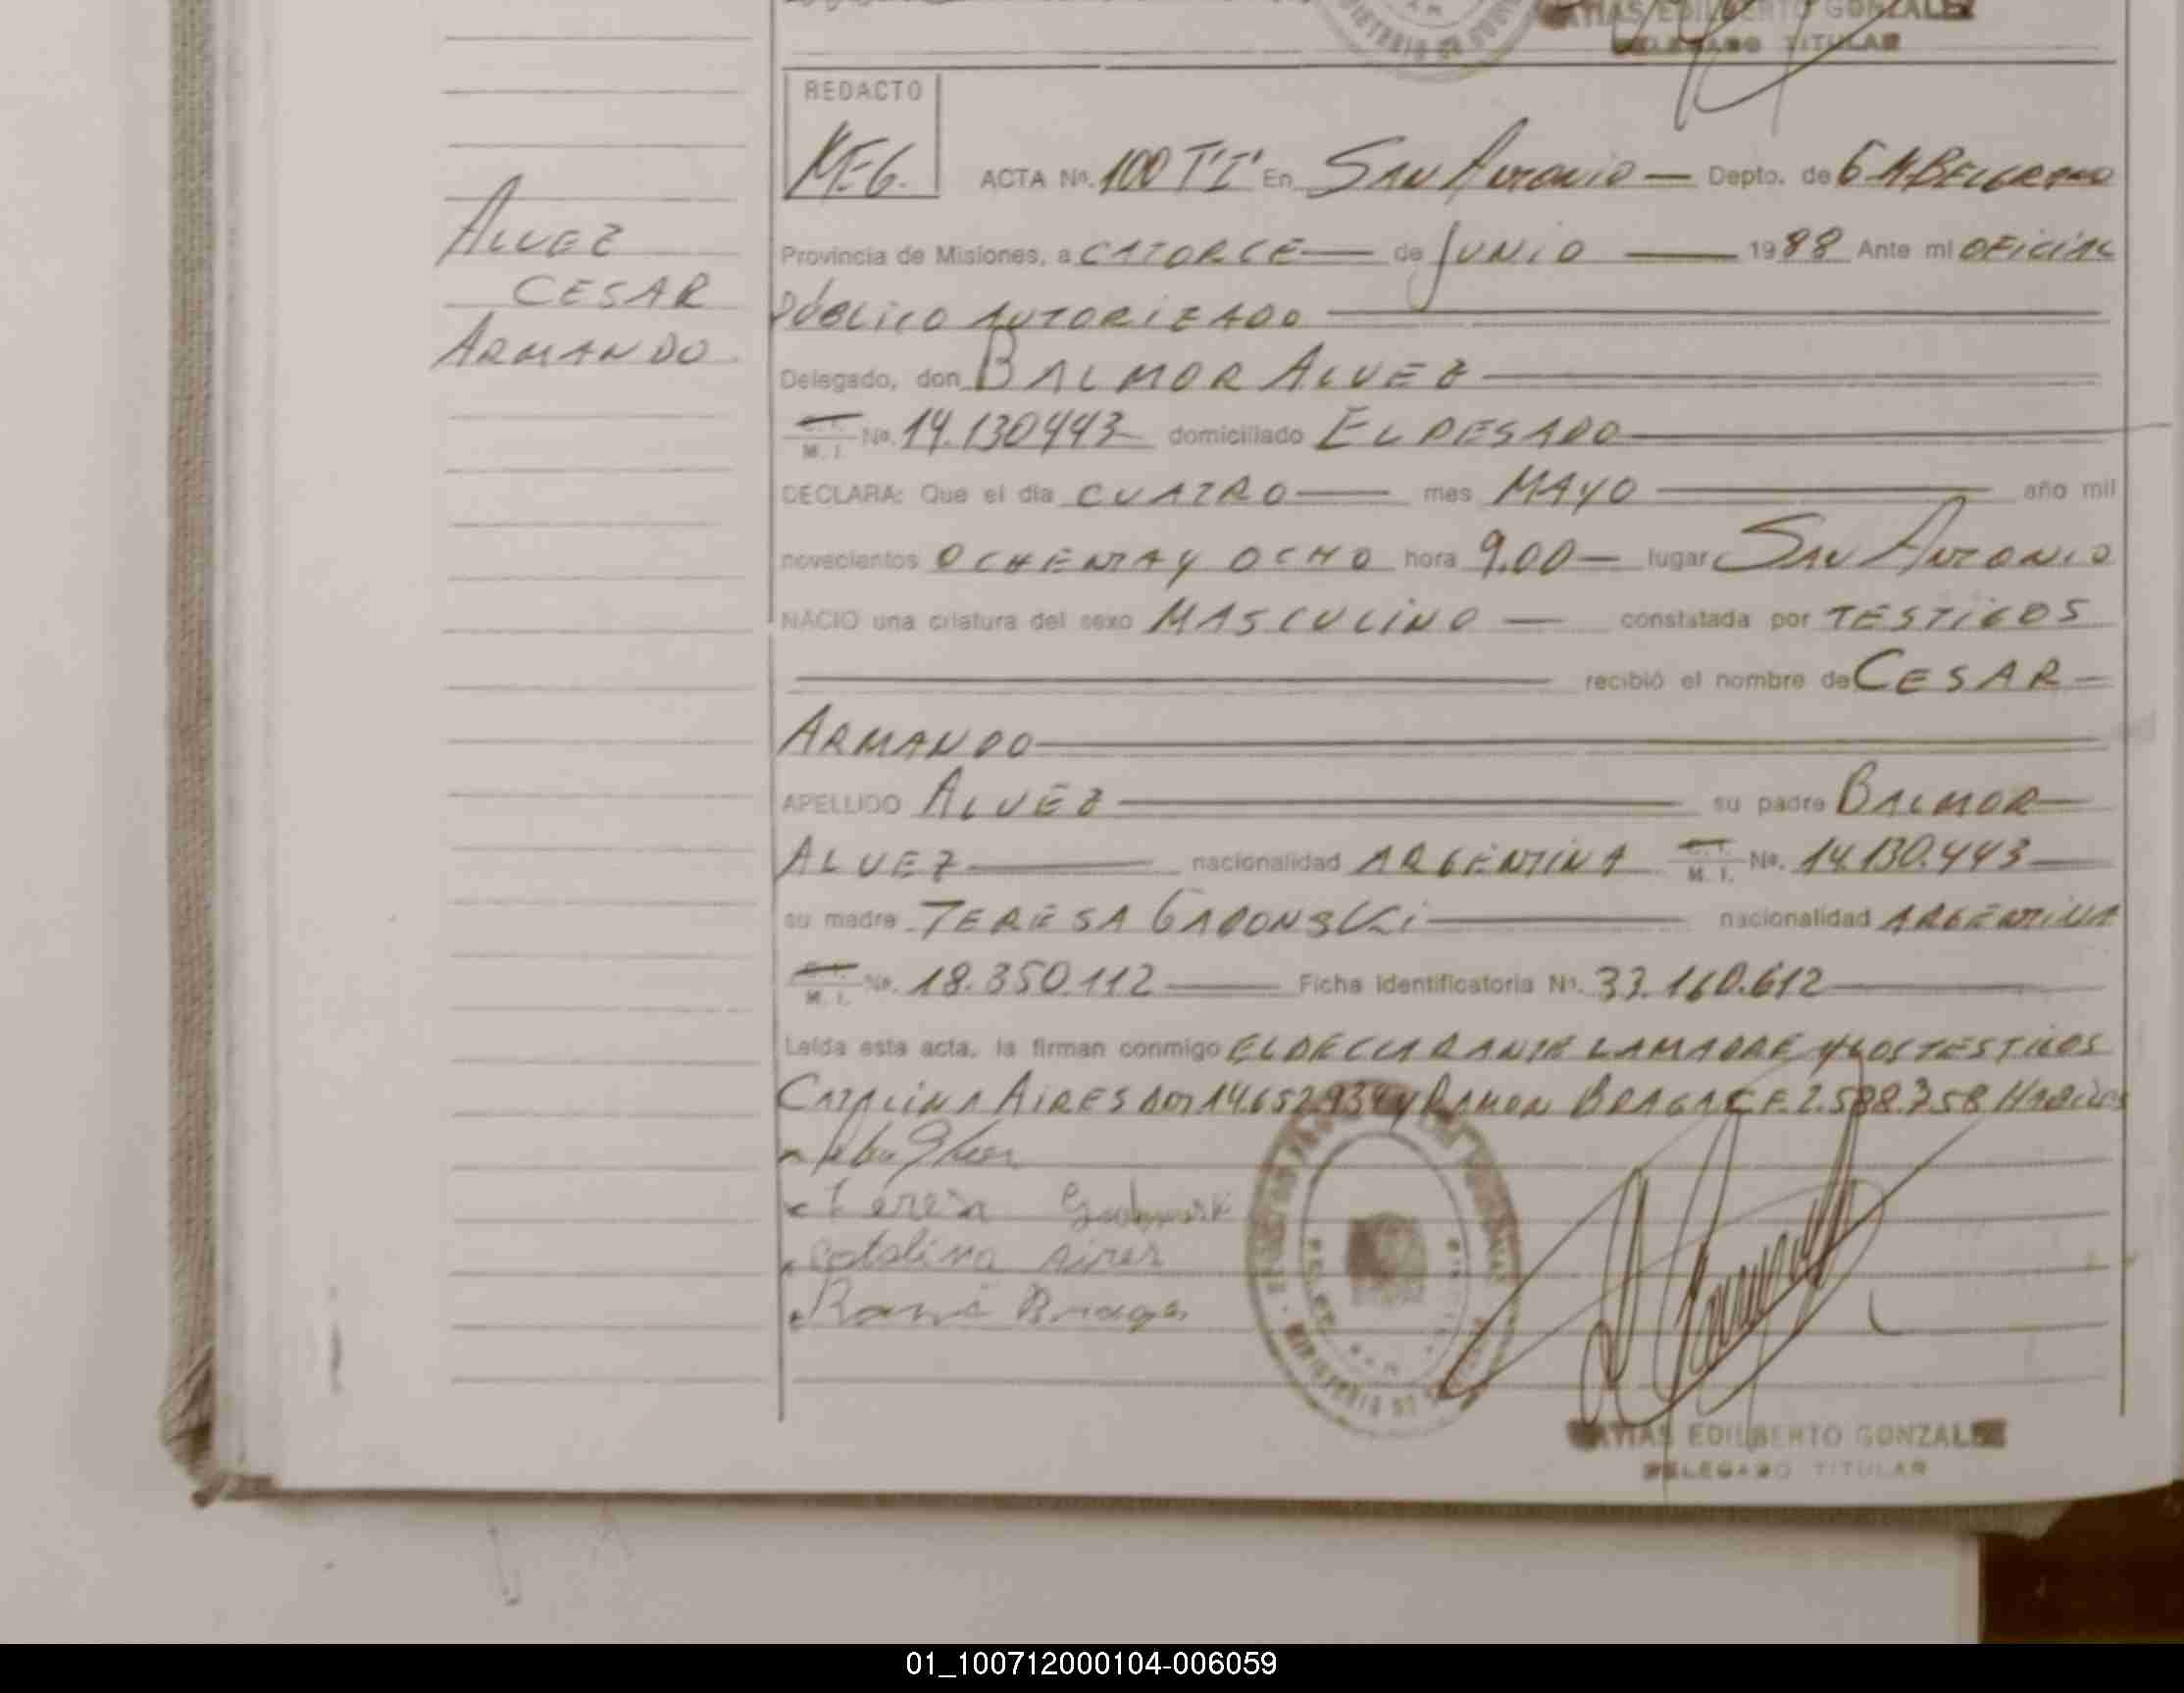 GONZALEZ
DELEGADO TITULAR
REDACTO
M.E.G.
ACTA Nº. 100 T"I" En SAN ANTONIO — Depto. de G M BELGRANO
ALVEZ
CESAR
ARMANDO
Provincia de Misiones, a CATORCE — de JUNIO — 1988 Ante mi OFICIAL
PÚBLICO AUTORIZADO
Delegado, don BALMOR ALVEZ
M. I. Nº. 14.130443 domiciliado EL PESADO
DECLARA: Que el día CUATRO — mes MAYO — año mil
novecientos OCHENTA Y OCHO hora 9.00 — lugar SAN ANTONIO
NACIO una criatura del sexo MASCULINO — constatada por TESTIGOS
recibió el nombre de CESAR —
ARMANDO
APELLIDO ALVEZ — su padre BALMOR —
ALVEZ — nacionalidad ARGENTINA M. I. Nº. 14.130.443 —
su madre TERESA GADONSKI — nacionalidad ARGENTINA
M. I. Nº. 18.350.112 — Ficha Identificatoria Nº. 33.160.612 —
Leída esta acta, la firman conmigo EL DECLARANTE LA MADRE Y LOS TESTIGOS
CATALINA AIRES DNI 14.652.934 y RAMON BRAGA C.F. 2.588.758 HABILES
Teresa
Catalina Aires
Braga
MATIAS EDILBERTO GONZALEZ
DELEGADO TITULAR
01_100712000104-006059